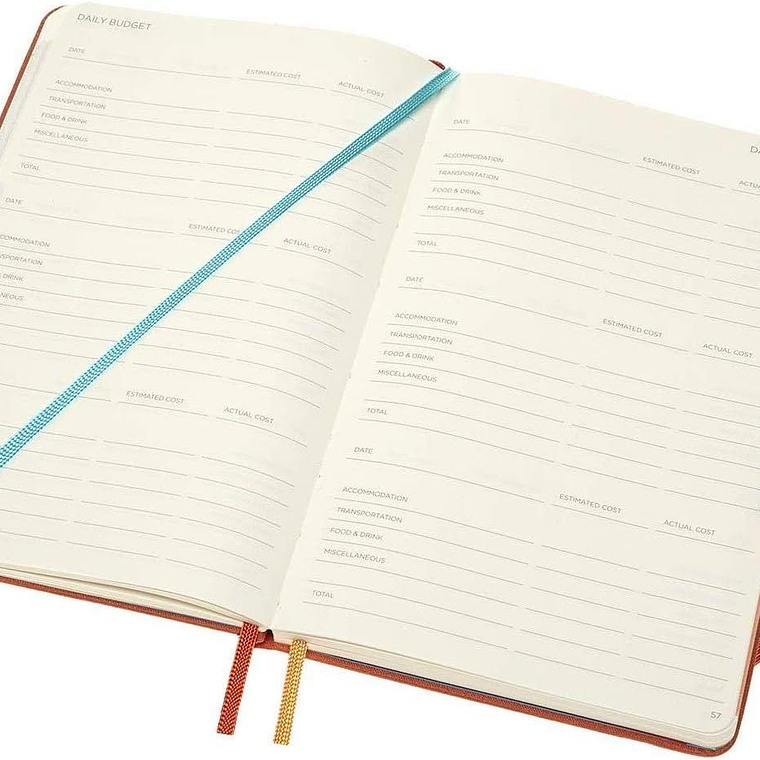 DAILY BUDGET
DATE
ESTIMATED COST ACTUAL COST
ACCOMMODATION
TRANSPORTATION
FOOD & DRINK
MISCELLANEOUS
TOTAL
DATE
ESTIMATED COST ACTUAL COST
COMMODATION
SPORTATION
DRINK
NEOUS
ESTIMATED COST ACTUAL COST
DA
DATE
ESTIMATED COST ACTUA
ACCOMMODATION
TRANSPORTATION
FOOD & DRINK
MISCELLANEOUS
TOTAL
DATE
ESTIMATED COST ACTUAL COST
ACCOMMODATION
TRANSPORTATION
FOOD & DRINK
MISCELLANEOUS
TOTAL
DATE
ESTIMATED COST ACTUAL COST
ACCOMMODATION
TRANSPORTATION
FOOD & DRINK
MISCELLANEOUS
TOTAL
57